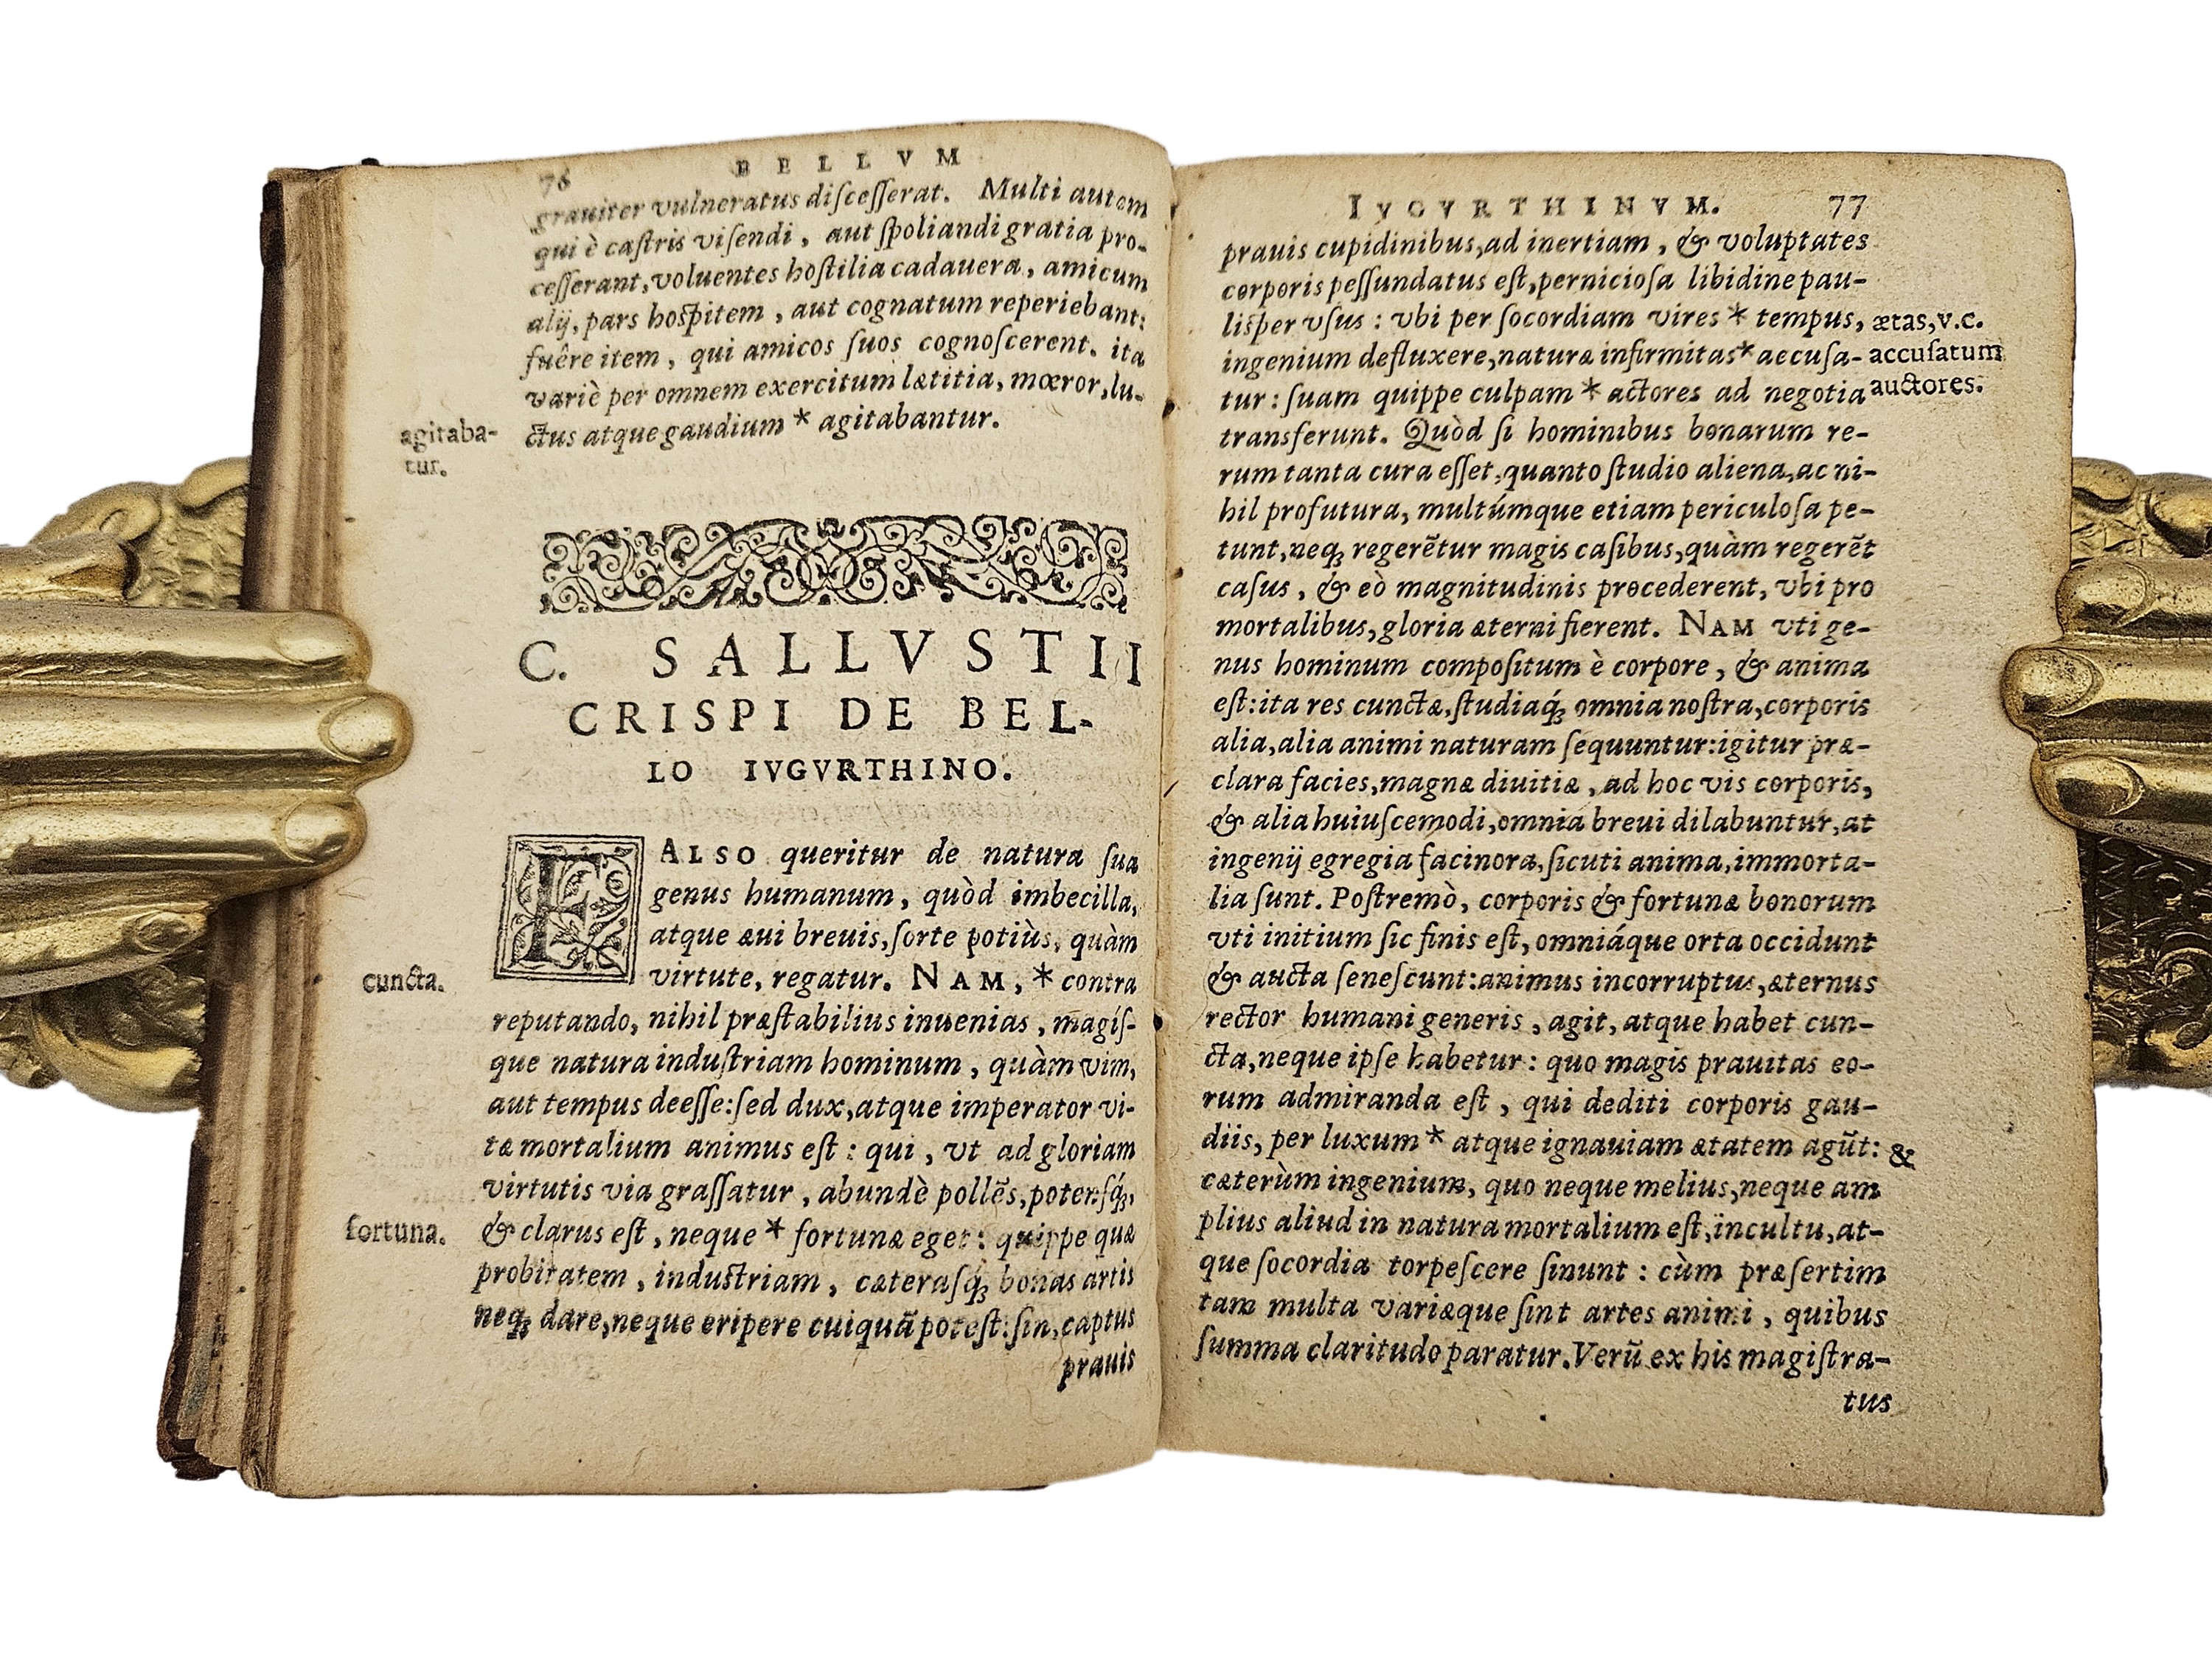 76 BELLVM
grauiter vulneratus diſceſſerat. Multi autem
qui è caſtris viſendi, aut ſpoliandi gratia pro-
ceſſerant, voluentes hoſtilia cadauera, amicum
alij, pars hoſpitem, aut cognatum reperiebant:
fuêre item, qui amicos ſuos cognoſcerent. ita
variè per omnem exercitum lætitia, mœror, lu-
ctus atque gaudium * agitabantur.
agitaba-
tur.
C. SALLVSTII
CRISPI DE BEL-
LO IVGVRTHINO.
FALSO queritur de natura ſua
genus humanum, quòd imbecilla,
atque æui breuis, ſorte potiùs, quàm
virtute, regatur. NAM, * contra
cuncta.
reputando, nihil præſtabilius inuenias, magíſ-
que natura induſtriam hominum, quàm vim,
aut tempus deeſſe: ſed dux, atque imperator vi-
tæ mortalium animus eſt: qui, vt ad gloriam
virtutis via graſſatur, abundè pollẽs, potenſq́;
& clarus eſt, neque * fortunæ eget: quippe quæ
fortuna.
probitatem, induſtriam, cæteraſq́; bonas artis
neq; dare, neque eripere cuiquã poteſt: ſin, captus
prauis
IVGVRTHINVM. 77
prauis cupidinibus, ad inertiam, & voluptates
corporis peſſundatus eſt, pernicioſa libidine pau-
liſper vſus: vbi per ſocordiam vires * tempus,
ætas, v.c.
ingenium defluxere, naturæ infirmitas * accuſa-
accuſatum
tur: ſuam quippe culpam * actores ad negotia
auctores.
transferunt. Quòd ſi hominibus bonarum re-
rum tanta cura eſſet, quanto ſtudio aliena, ac ni-
hil profutura, multúmque etiam periculoſa pe-
tunt, neq; regerẽtur magis caſibus, quàm regerẽt
caſus, & eò magnitudinis procederent, vbi pro
mortalibus, gloria æterni fierent. NAM vti ge-
nus hominum compoſitum è corpore, & anima
eſt: ita res cunctæ, ſtudiaq́; omnia noſtra, corporis
alia, alia animi naturam ſequuntur: igitur præ-
clara facies, magnæ diuitiæ, ad hoc vis corporis,
& alia huiuſcemodi, omnia breui dilabuntur, at
ingenij egregia facinora, ſicuti anima, immorta-
lia ſunt. Poſtremò, corporis & fortunæ bonorum
vti initium ſic finis eſt, omniáque orta occidunt
& aucta ſeneſcunt: animus incorruptus, æternus
rector humani generis, agit, atque habet cun-
cta, neque ipſe habetur: quo magis prauitas eo-
rum admiranda eſt, qui dediti corporis gau-
diis, per luxum * atque ignauiam ætatem agũt:
&
cæterùm ingenium, quo neque melius, neque am
plius aliud in natura mortalium eſt, incultu, at-
que ſocordia torpeſcere ſinunt: cùm præſertim
tam multæ variæque ſint artes animi, quibus
ſumma claritudo paratur. Verũ ex his magiſtra-
tus